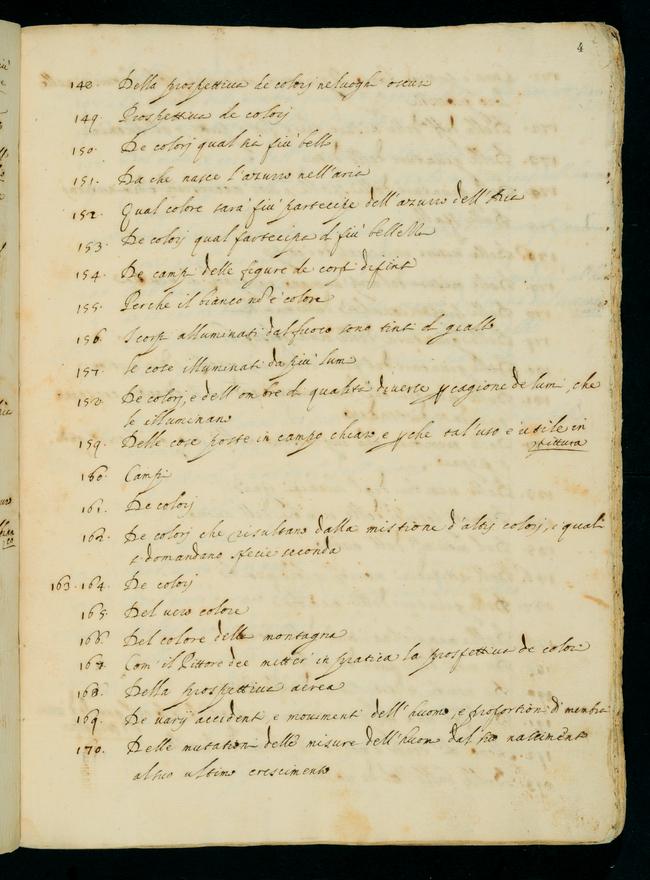 4
148. Della prospettiva de colorj ne luoghi oscuri
149. Prospettiva de colorj
150. De colorj qual sia piu' bello
151. Da che nasce l'azurro nell'aria
152. Qual colore sara' piu' partecipe dell'azurro dell'Aria
153. De colorj qual partecipa di piu' bellezza
154. De campi delle figure de corpi dipinti
155. Perche il bianco no' è colore
156. I corpi alluminati dal fuoco sono tinti di giallo
157. le cose illuminati da piu' lumi
158. De colorj, e dell'ombre di qualità diverse p cagione de lumi, che
le illuminano
159. Delle cose poste in campo chiaro, e p che tal'uso e' utile in
pittura
160. Campi
161. De colorj
162. De colorj che risultano dalla mistione d'altrj colorj, i quali
si domandano specie seconda
163. 164. De colorj
165. Del vero colore
166. Del colore delle montagna
167. Com' il Pittore dee mitter' in pratica la prospettiva de colori
168. Della prospettiva aerea
169. De varij accidenti, e movimenti dell'huomo, e proportion di membra
170. Delle mutationi delle misure dell'huomo dal suo nascimento
al suo ultimo crescimento